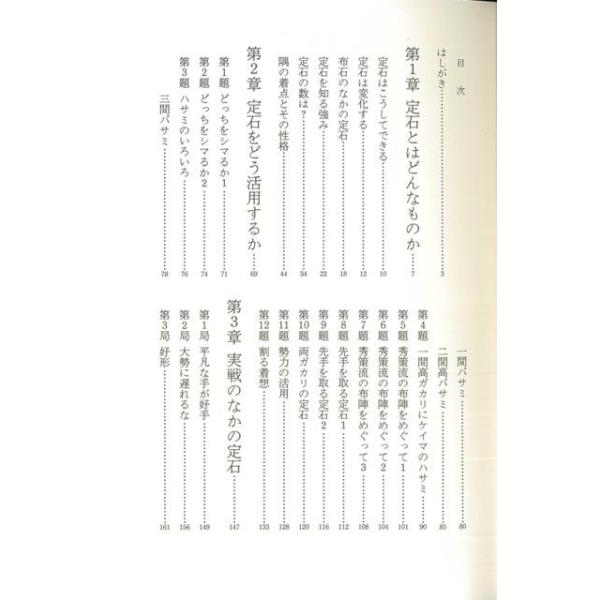 目次
はしがき……3
第1章 定石とはどんなものか……7
定石はこうしてできる……10
定石は変化する……12
布石のなかの定石……18
定石を知る強み……22
定石の数は?……34
隅の着点とその性格……44
第2章 定石をどう活用するか……69
第1題 どっちをシマるか1……71
第2題 どっちをシマるか2……74
第3題 ハサミのいろいろ……76
三間バサミ……78
一間バサミ……80
二間高バサミ……85
第4題 一間高ガカリにケイマのハサミ……90
第5題 秀策流の布陣をめぐって1……101
第6題 秀策流の布陣をめぐって2……104
第7題 秀策流の布陣をめぐって3……108
第8題 先手を取る定石1……112
第9題 先手を取る定石2……116
第10題 両ガカリの定石……120
第11題 勢力の活用……128
第12題 割る着想……133
第3章 実戦のなかの定石……147
第1局 平凡な手が好手……149
第2局 大勢に遅れるな……156
第3局 好形……161